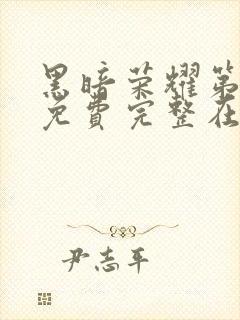 黑暗荣耀第
免费完整在
尹志平